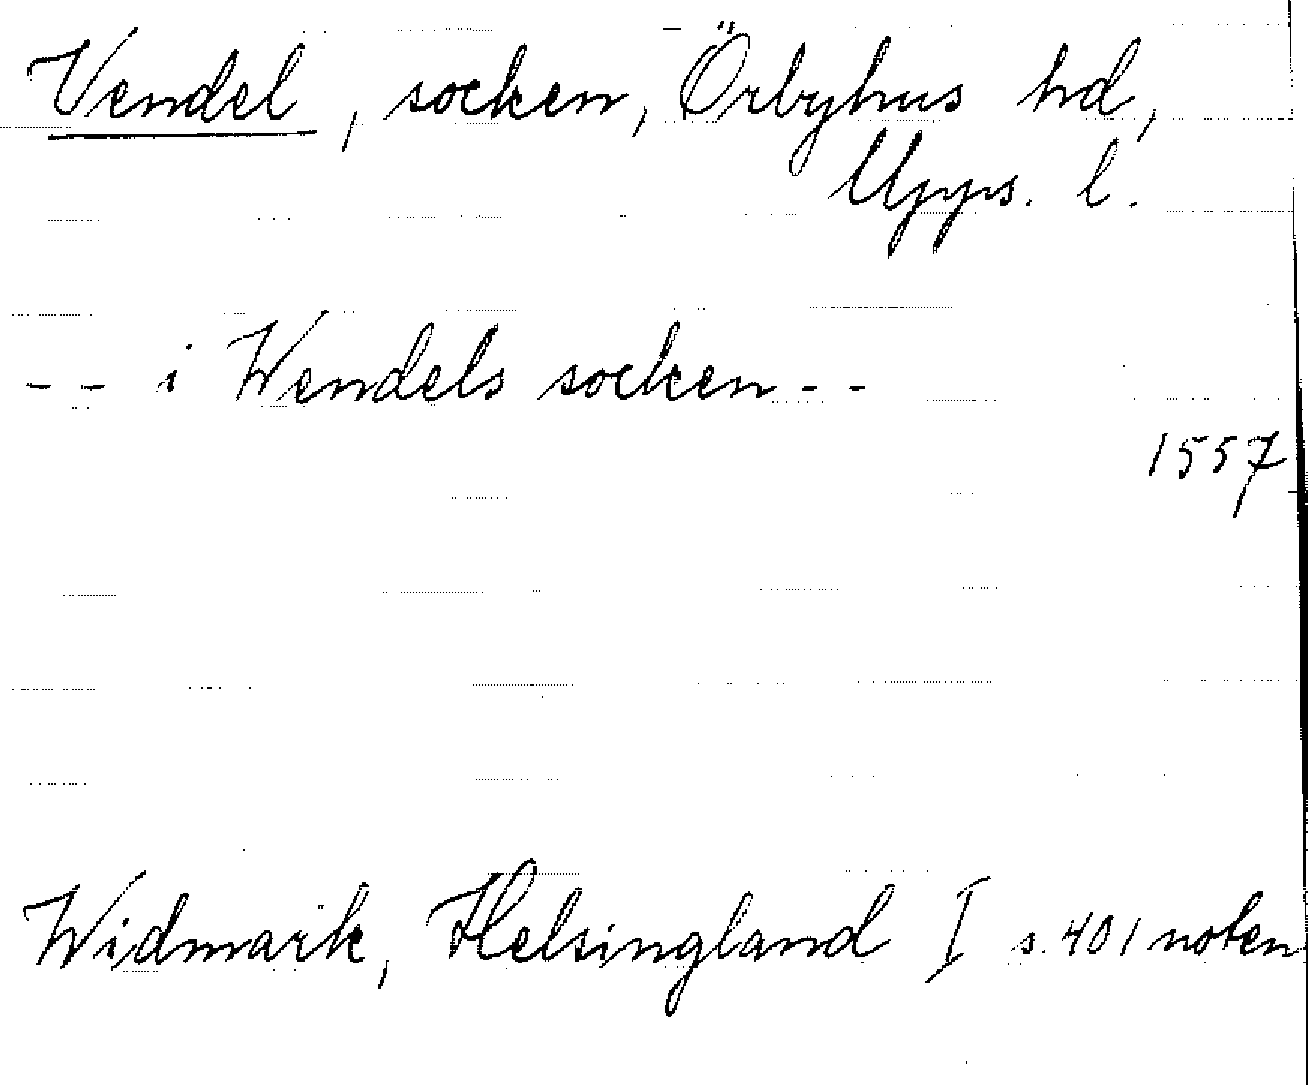 Vendel, socken, Örbyhus hd,
Upps. l.
-- i Wendels socken --
1557
Widmark, Helsingland I s. 401 noten